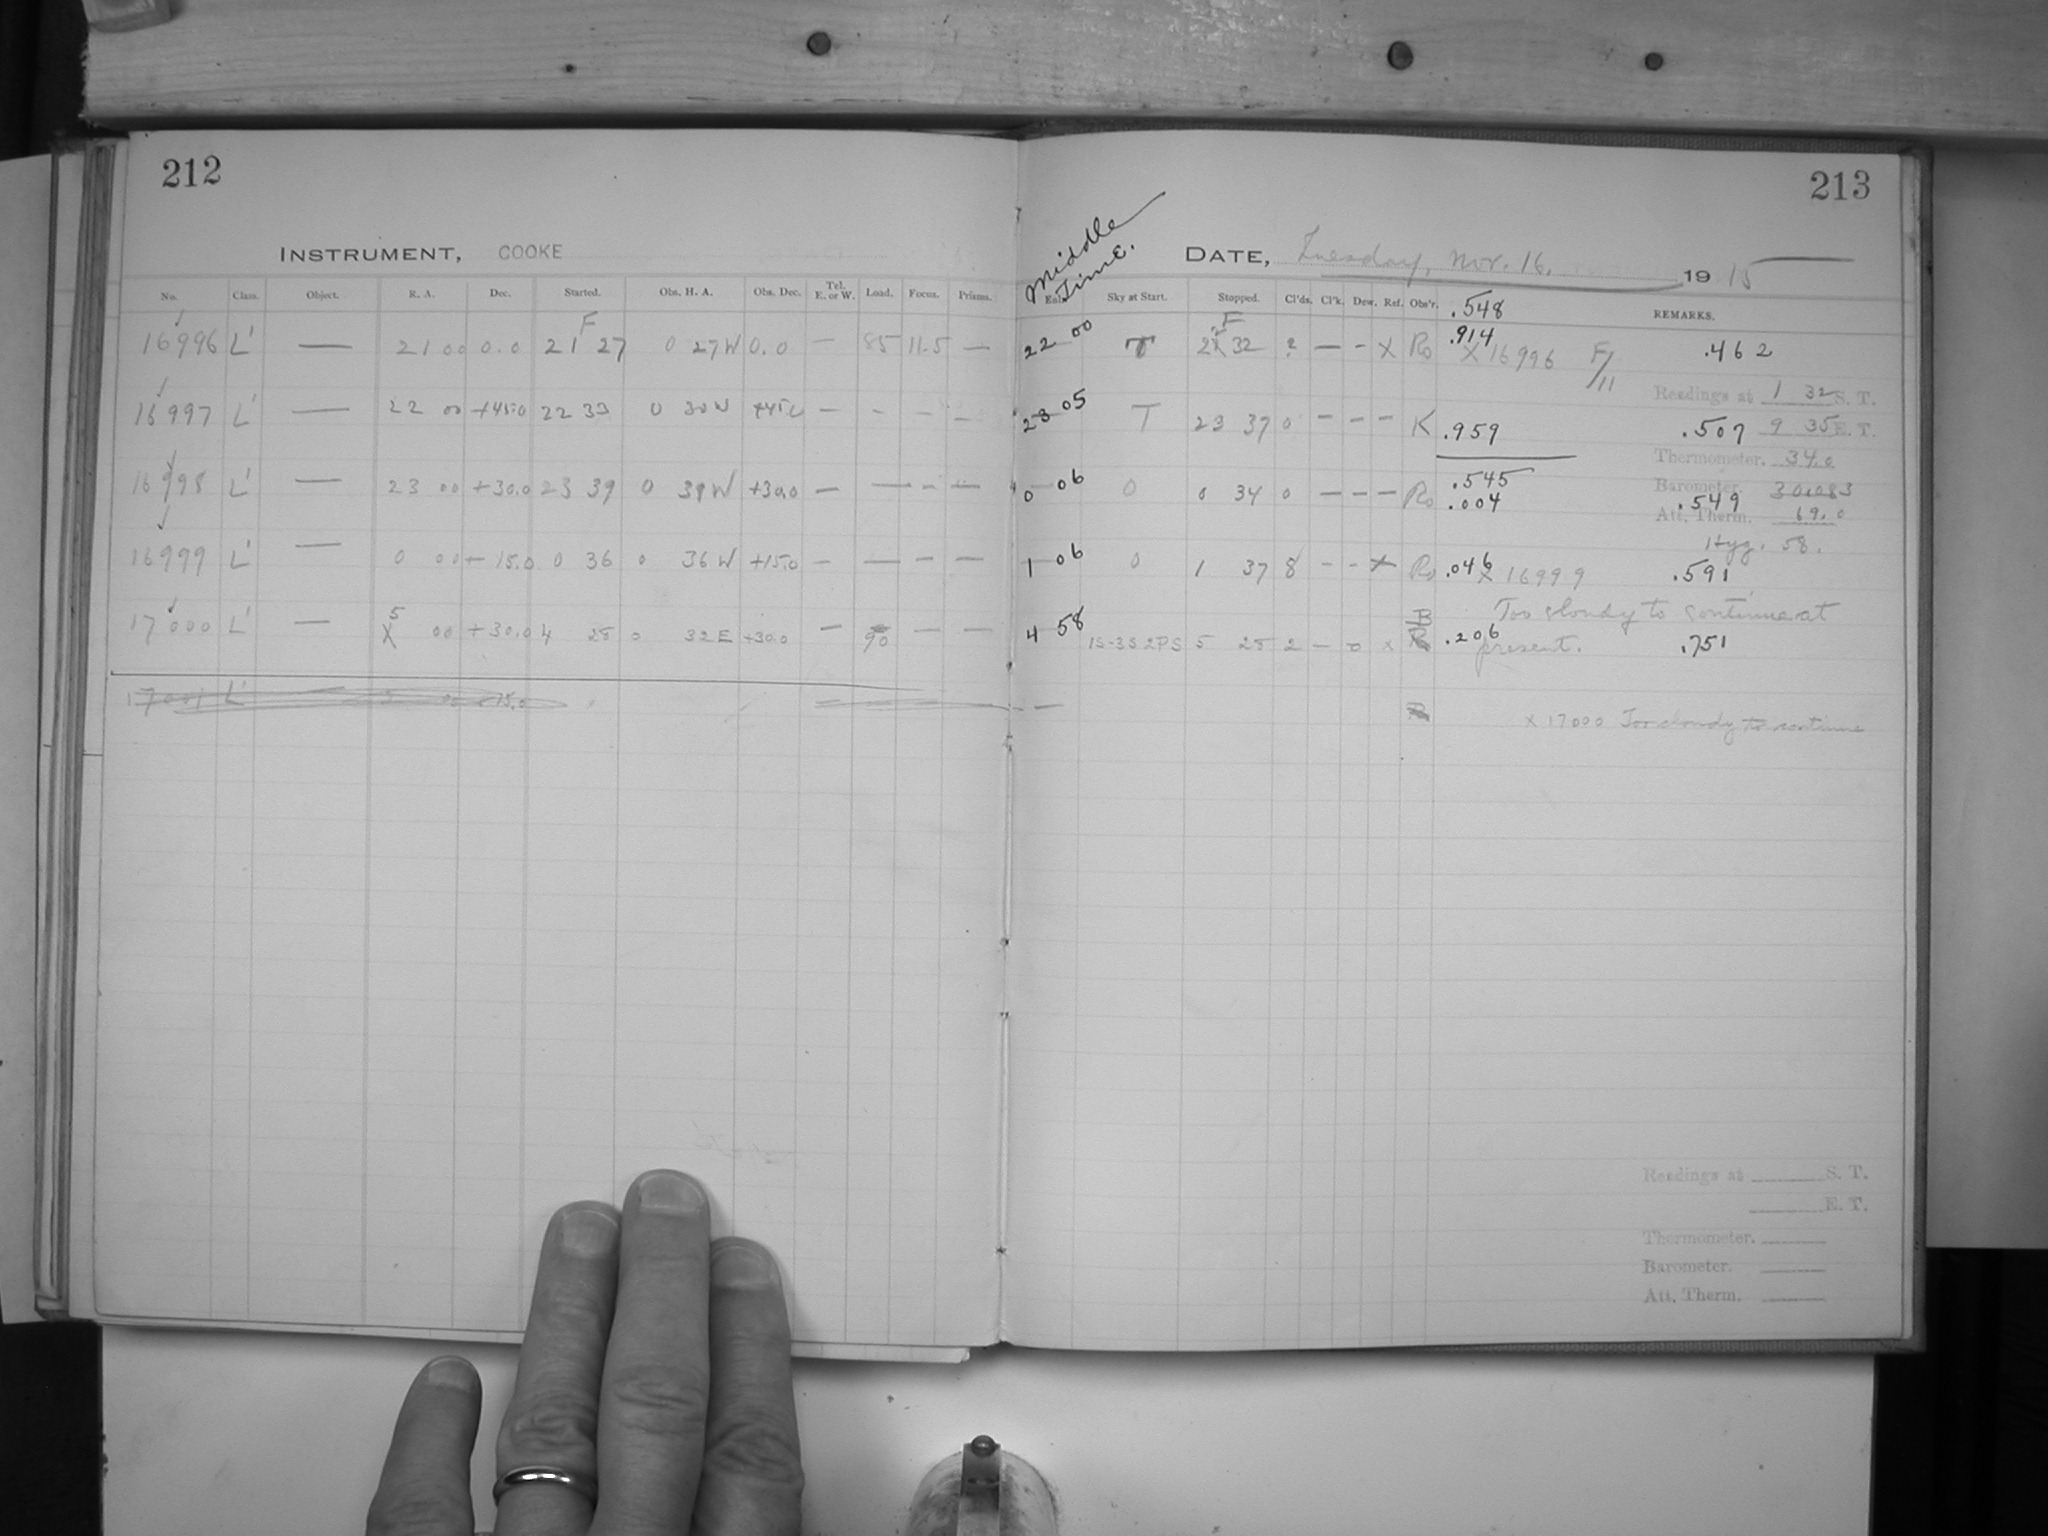 212
INSTRUMENT, COOKE
No. Class. Object. R. A. Dec. Started. Obs. H. A. Obs. Dec. Tel. E. or W. Load. Focus. Prisms.
16996 L' — 21 00 0.0 21 F 27 0 27 W 0.0 — 85 11.5 —
16997 L' — 22 00 +45.0 22 33 0 30 W +45.0 — - — —
16998 L' — 23 00 +30.0 23 39 0 39 W +30.0 — — - —
16999 L' — 0 00 +15.0 0 36 0 36 W +15.0 — — — —
17000 L' — 5 00 +30.0 4 28 0 32 E +30.0 — 90 — —
17001 L' 5 00 +15.0
213
Middle Time.
DATE, Tuesday, Nov. 16. 1915
Sky at Start. Stopped. Cl'ds. Cl'k. Dew. Ref. Obs'r. .548 REMARKS.
22 00 T 22 F 32 2 — - X Ro .914 X 16996 F/11 .462
Readings at 1 32 S. T.
23 05 T 23 37 0 - - - K .959 .507 9 35 E. T.
Thermometer. 34.0
0 06 0 0 34 0 — — — Ro .545 .004 .549 Barometer. 30.083
Att. Therm. 69.0
Hyg. 58.
1 06 0 1 37 8 - - X Ro .046 X 16999 .591
B Too cloudy to continue at
4 58 1S-3S2PS 5 28 2 — 0 x .206 present. .751
x 17000 Too cloudy to continue
Readings at S. T.
E. T.
Thermometer.
Barometer.
Att. Therm.